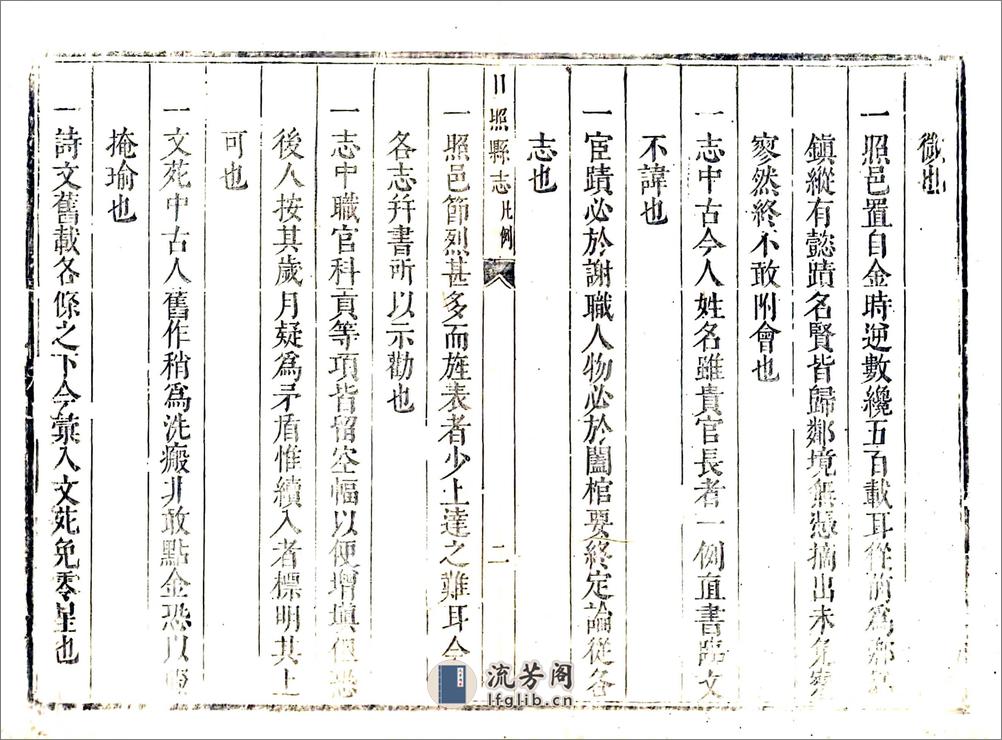 微也
一照邑置自金時逆數纔五百載耳從前為鄉
鎮縱有懿蹟名賢皆歸鄰境無憑摘出未免寥
寥然終不敢附會也
一志中古今人姓名雖貴官長者一例直書臨文
不諱也
一宦蹟必於謝職人物必於闔棺要終定論從各
志也
日照縣志 凡例 二
一照邑節烈甚多而旌表者少上達之難耳今
各志幷書所以示勸也
一志中職官科貢等項皆留空幅以便增塡但恐
後人按其歲月疑為矛盾惟續入者標明其上
可也
一文苑中古人舊作稍為洗瘢非敢點金恐以瑕
掩瑜也
一詩文舊載各條之下今彙入文苑免零星也
流芳阁
lfglib.cn